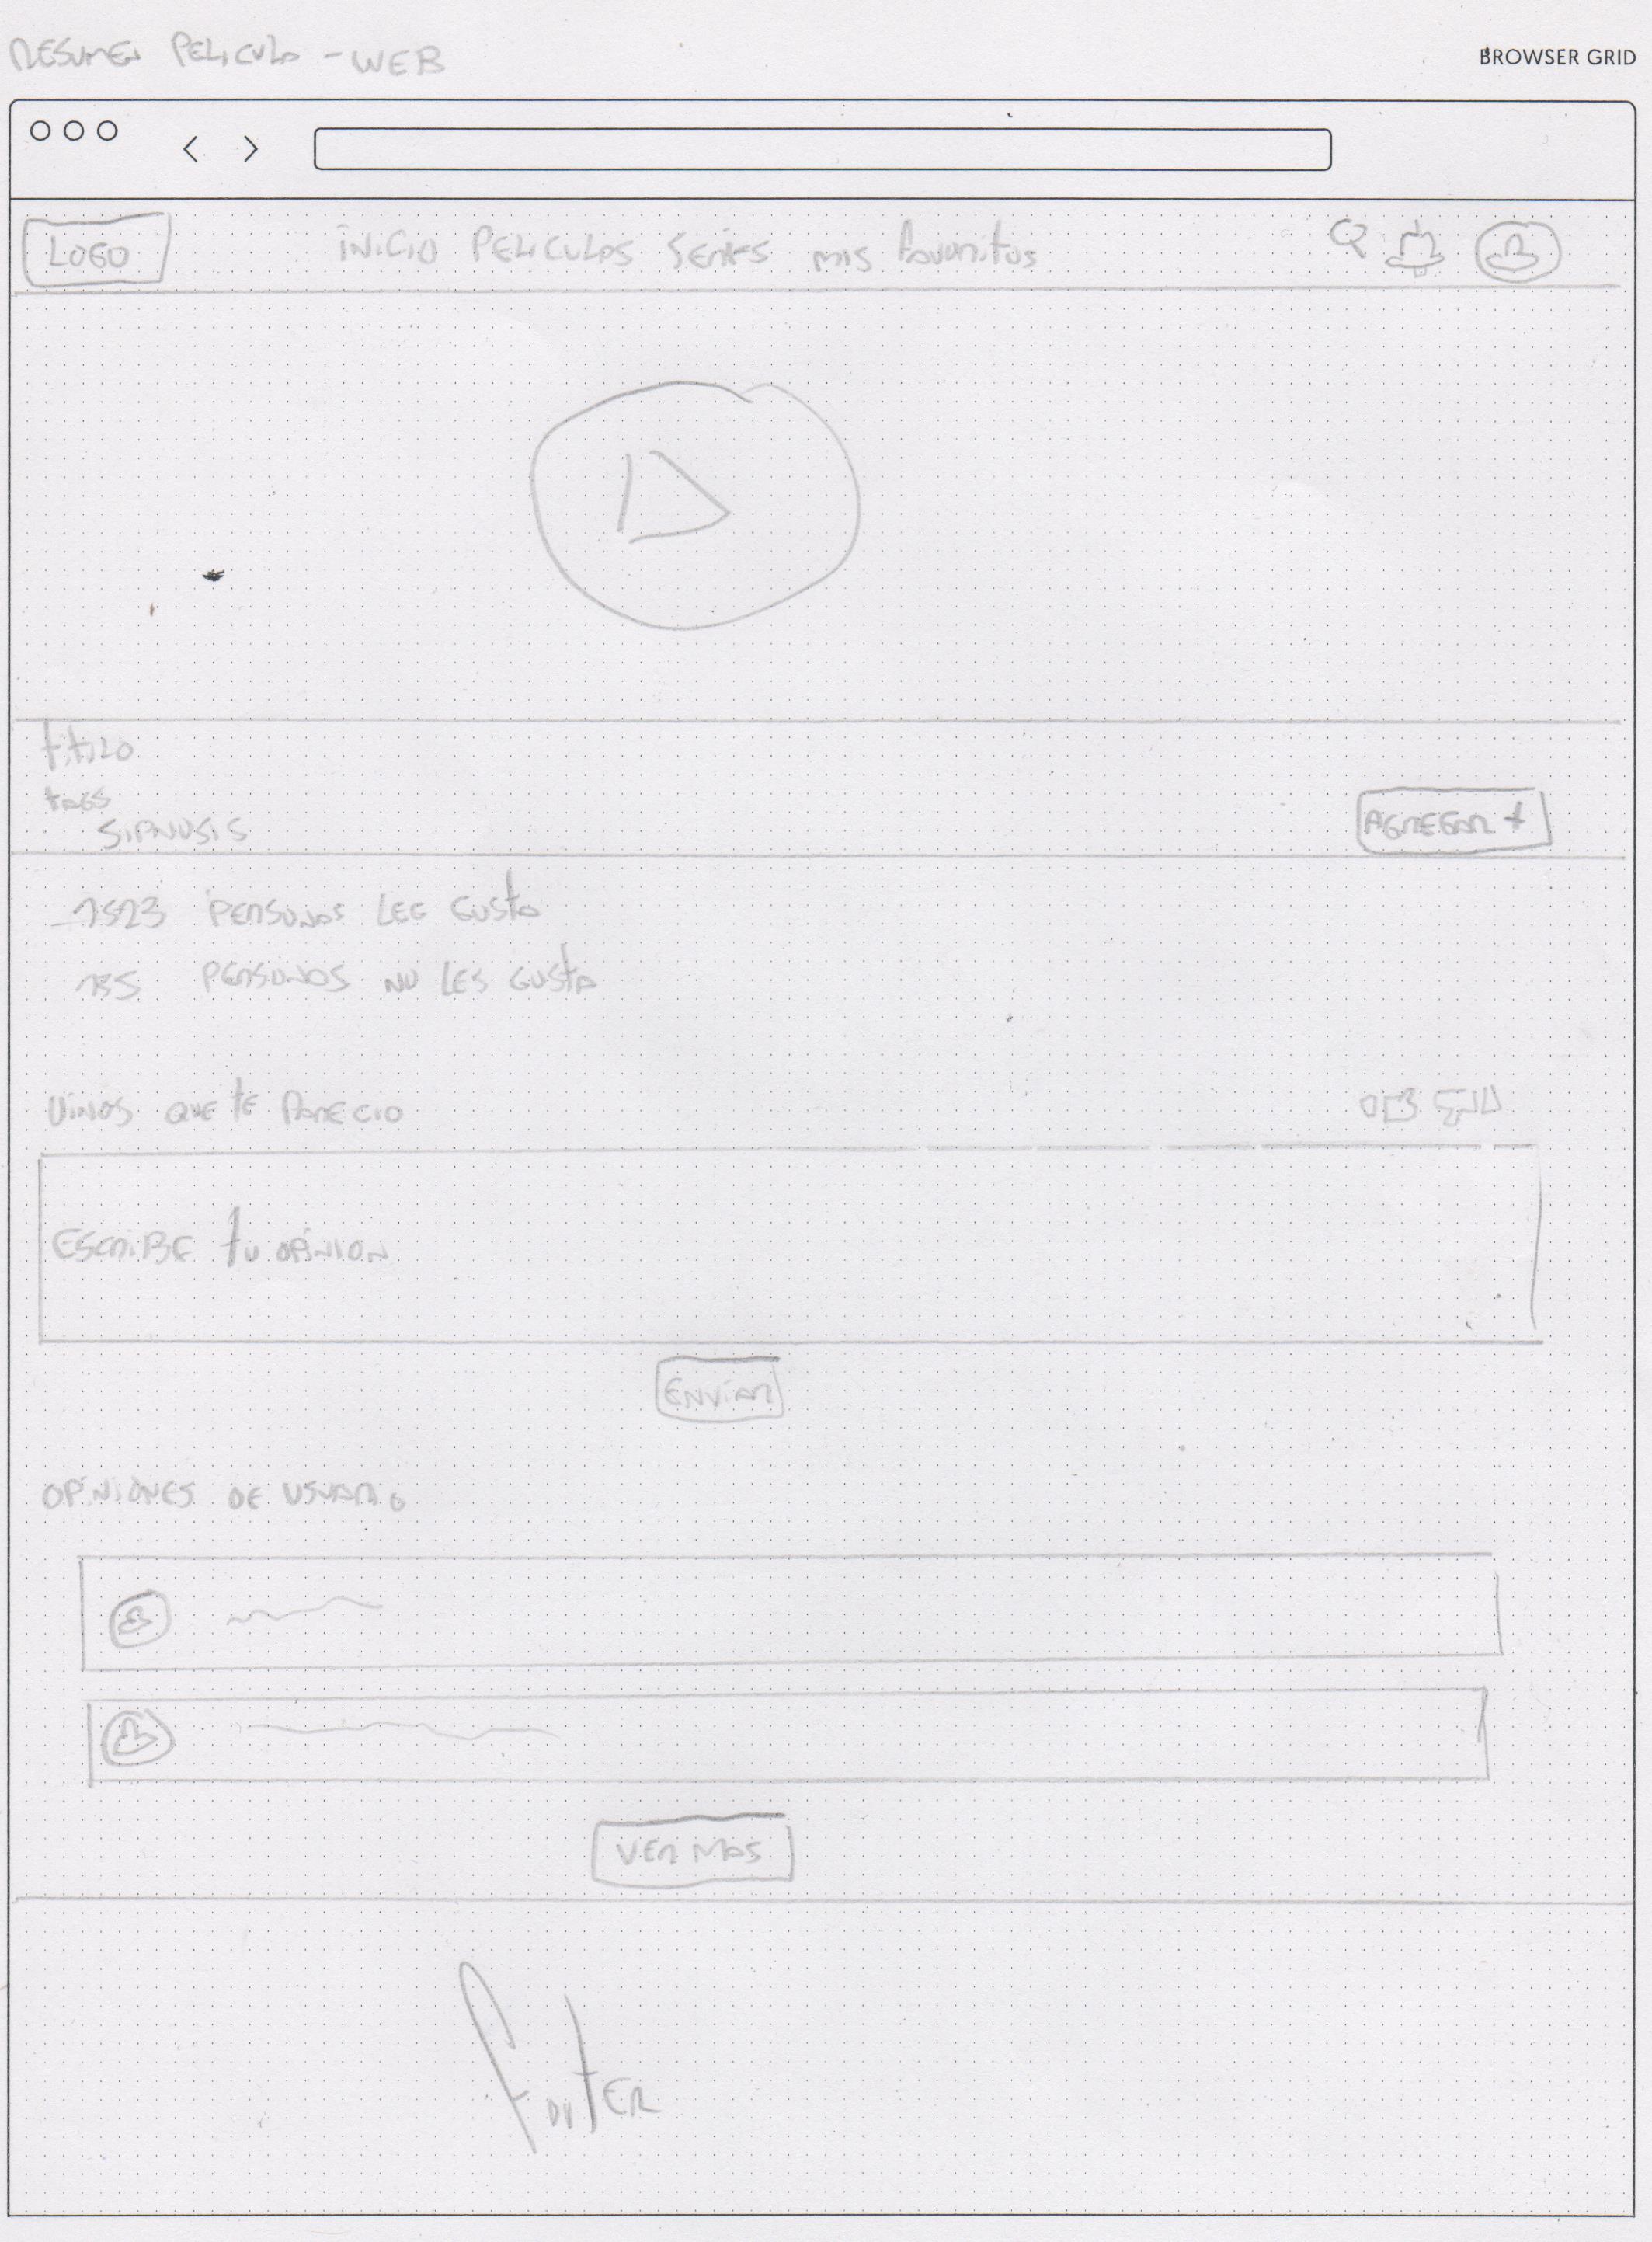 RESUMEN PELICULA - WEB
BROWSER GRID
LOGO INICIO PELICULAS SERIES MIS favoritos
titulo
tAGS
SIPNOSIS
AGREGAR +
1523 PERSONAS LES GUSTA
135 PERSONAS NO LES GUSTA
DINOS QUE tE PARECIO
ESCRIBE tu OPINION
ENVIAR
OPINIONES DE USUARIO
VER MAS
footER